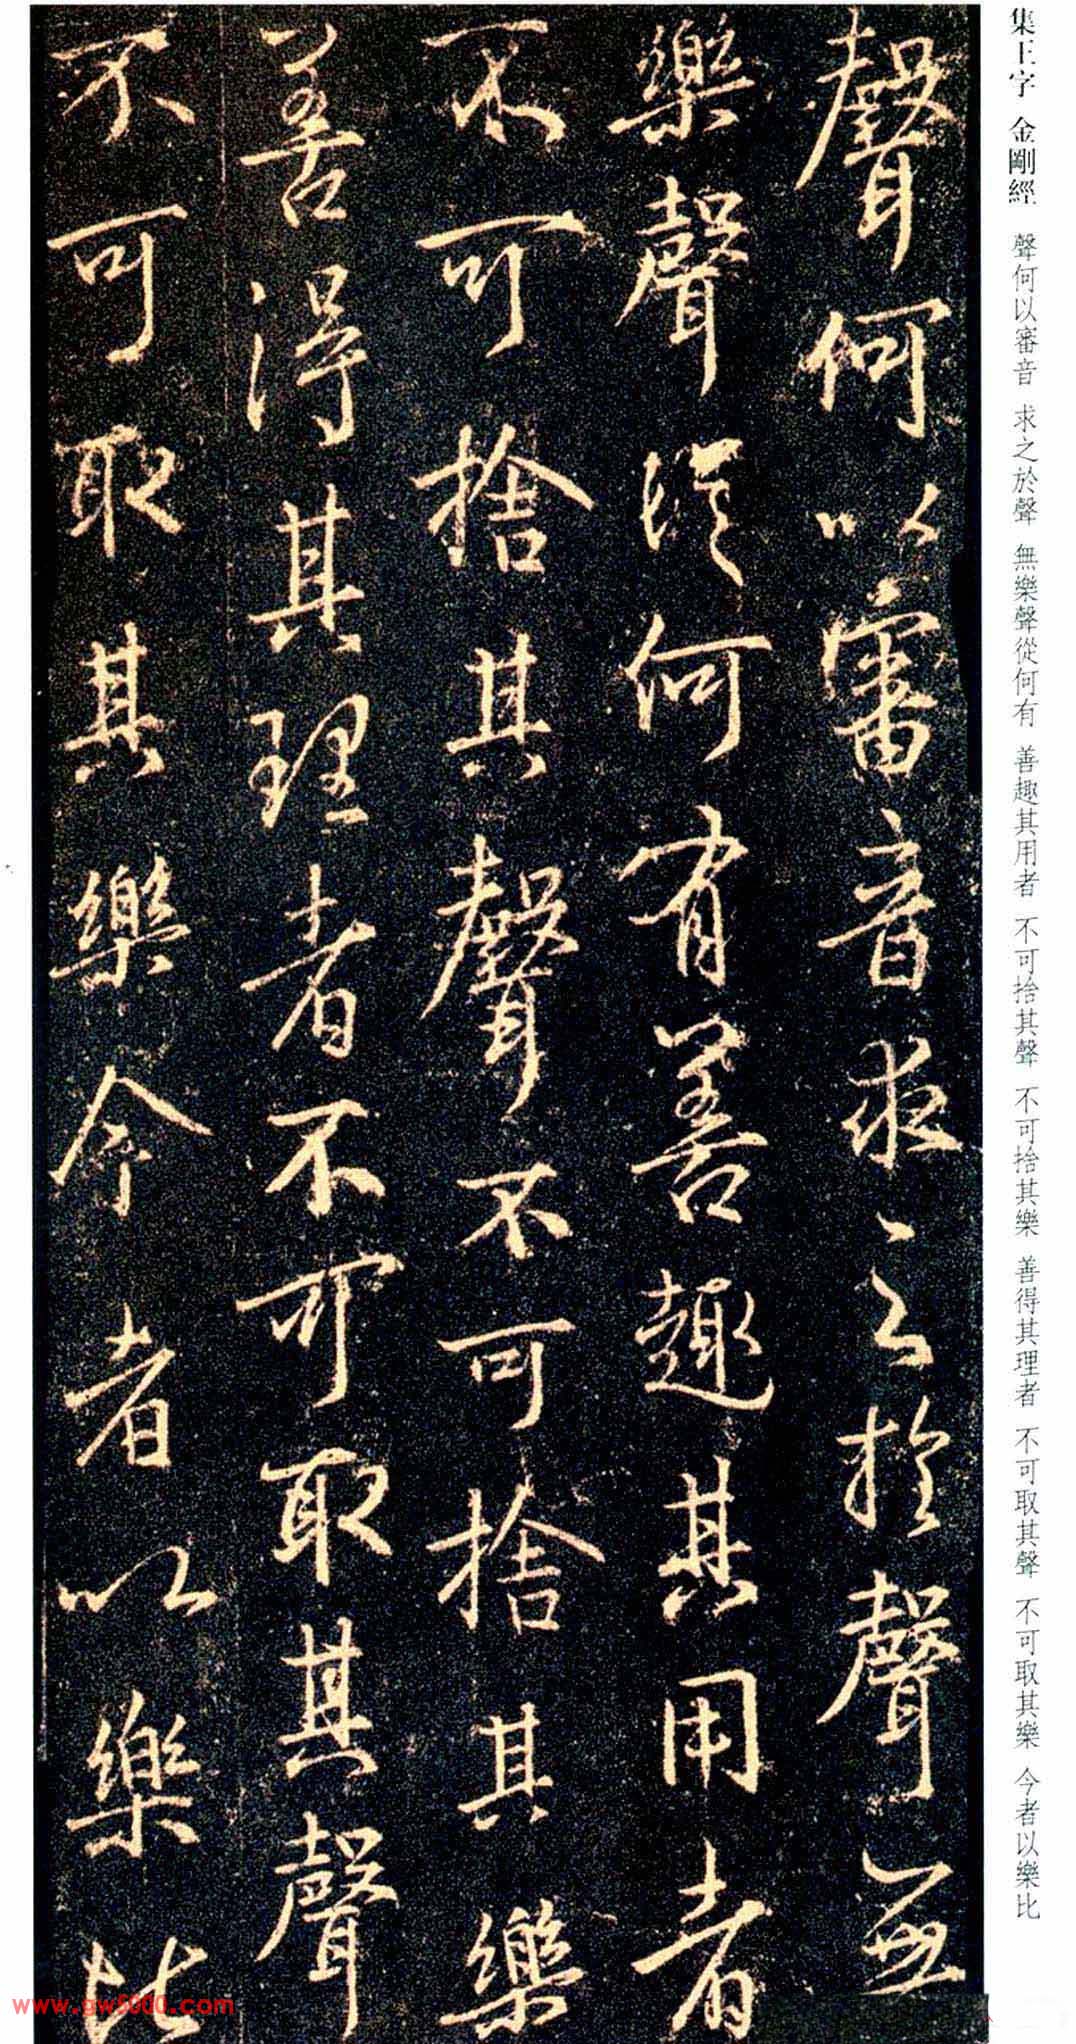 集王字 金剛經 聲何以審音 求之於聲 無樂聲從何有 善趣其用者 不可捨其聲 不可捨其樂 善得其理者 不可取其聲 不可取其樂 今者以樂比
聲何以審音求之於聲無
樂聲從何有善趣其用者
不可捨其聲不可捨其樂
善得其理者不可取其聲
不可取其樂今者以樂比
www.gw5000.com